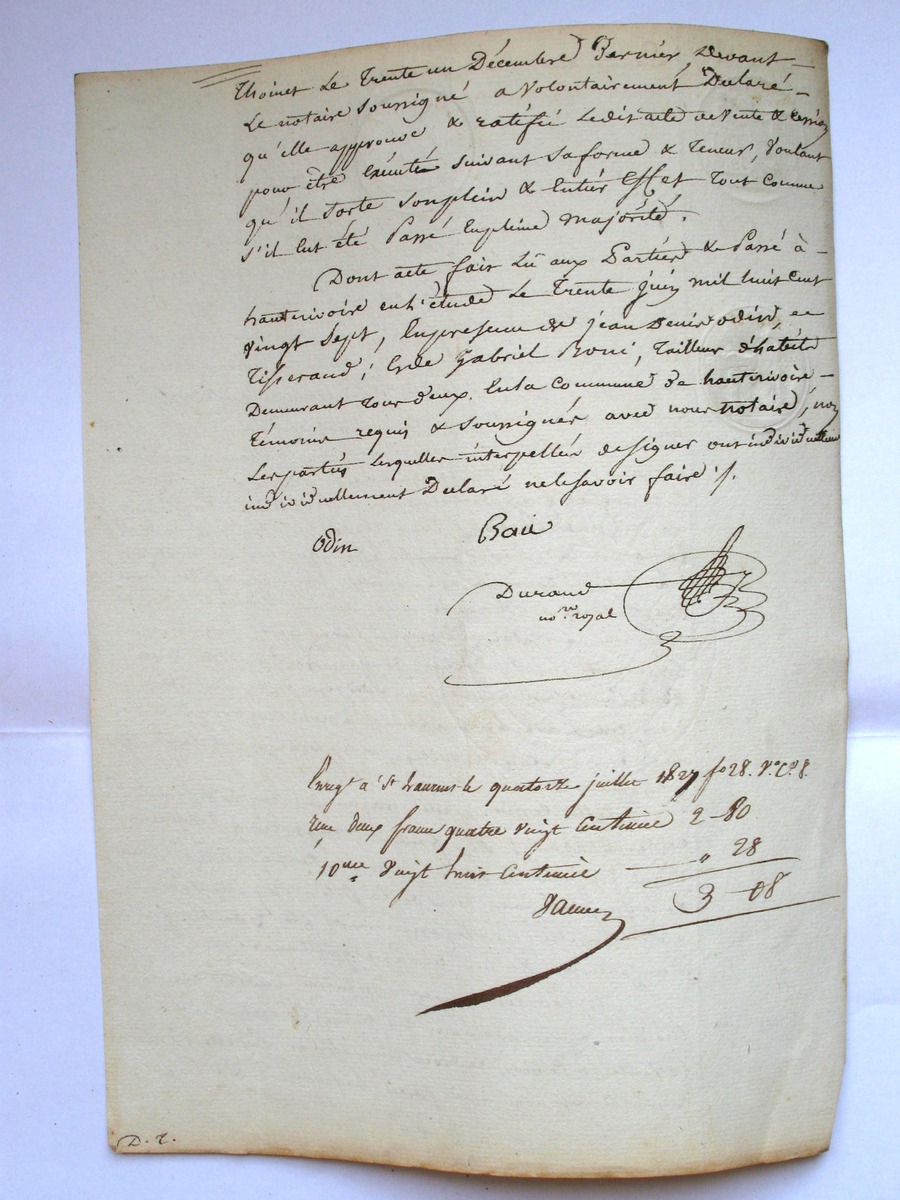 Thoinet Le Trente un Décembre Dernier, devant -
Le notaire soussigné a volontairement Déclaré -
qu'elle approuve & ratifie Ledit acte de Vente & cession
pour être Exécuté suivant sa forme & Teneur, voulant
qu'il sorte son plein & Entier Effet Tout comme
s'il Eut été Passé En pleine majorité.
Dont acte fait Lû aux Parties & Passé à -
hauterivoire en L'étude Le Trente juin mil huit cent
vingt sept, En presence de jean Denis odin,
Tisserand, & de Gabriel Tailleur d'habits
Demeurant Tous deux En la Commune de hauterivoire -
Témoins requis & soussignés avec nous notaire, non
Les parties Lesquelles interpellées de signer ont individuellement
individuellement Déclaré ne le savoir faire ./.
Odin
Durand
no.re royal
Enregt à St Laurent le quatorze juillet 1827 fo 28. Vo Ce 8.
reçu deux francs quatre vingt Centimes 2 - 80
10me Vingt huit Centimes " 28
3 - 08
D. T.